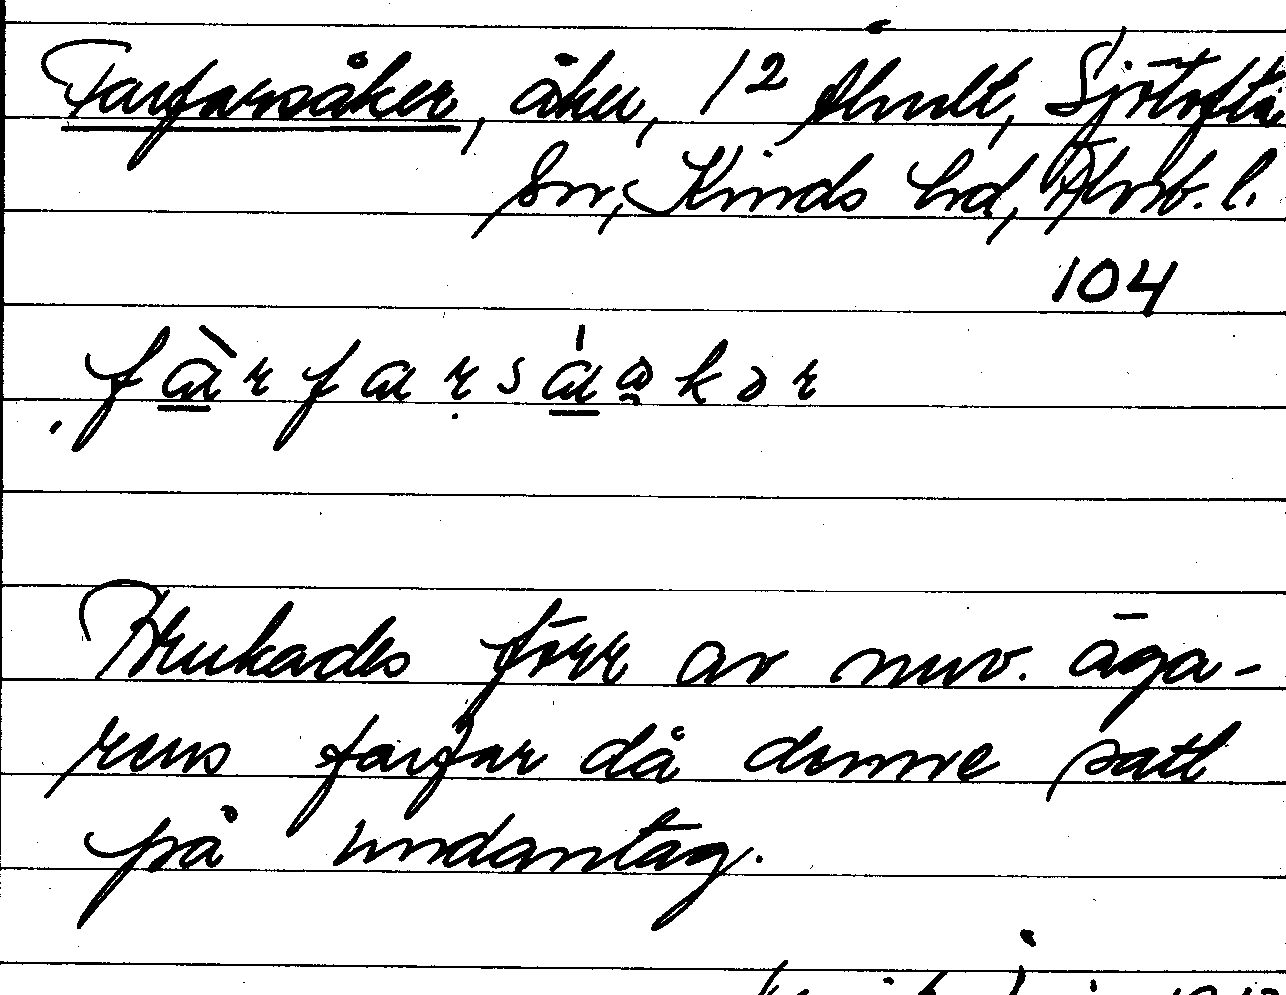 Farfarsåker, åker, 1² Ålhult, Sjötofta
sn, Kinds hd, Älvsb. l.
104
fàrfarsáɷkər
Brukades förr av nuv. äga-
rens farfar då denne satt
på undantag.